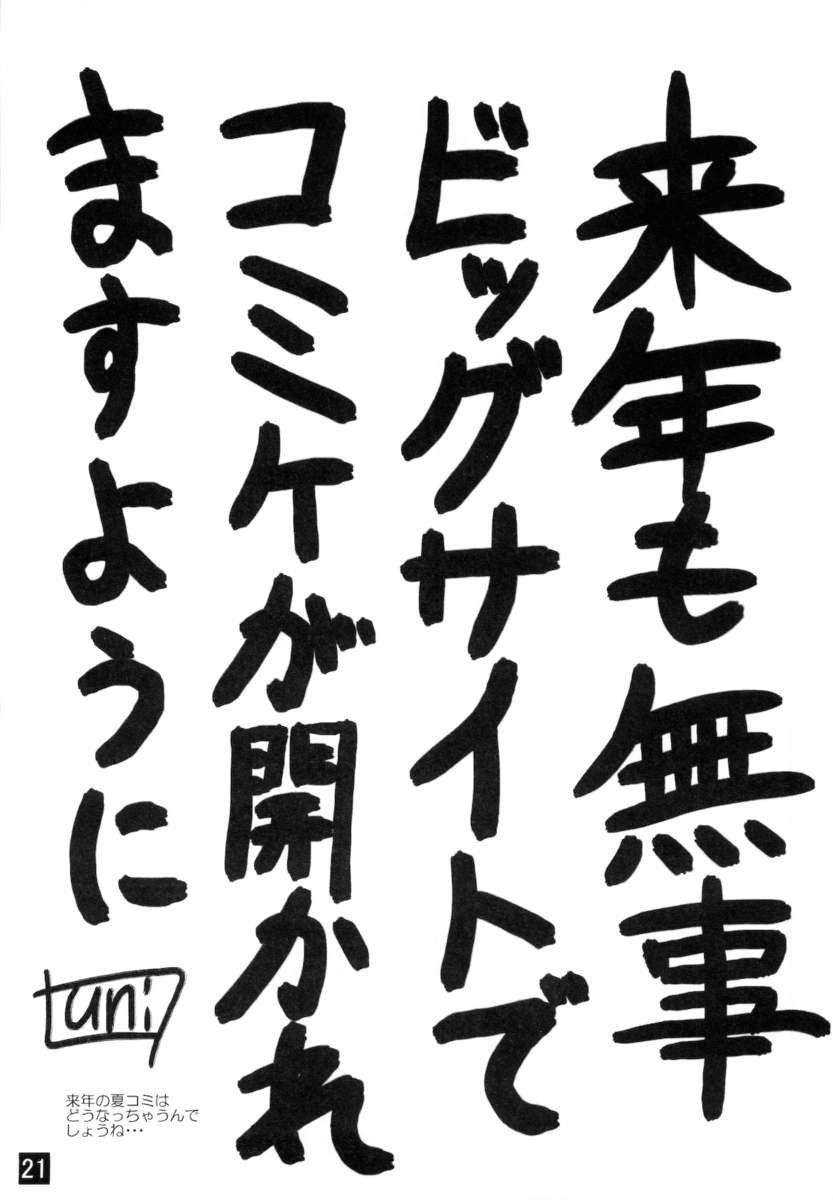 来年も無事
ビッグサイトで
コミケが開かれ
ますように
uni
来年の夏コミは
どうなっちゃうんで
しょうね・・・
21